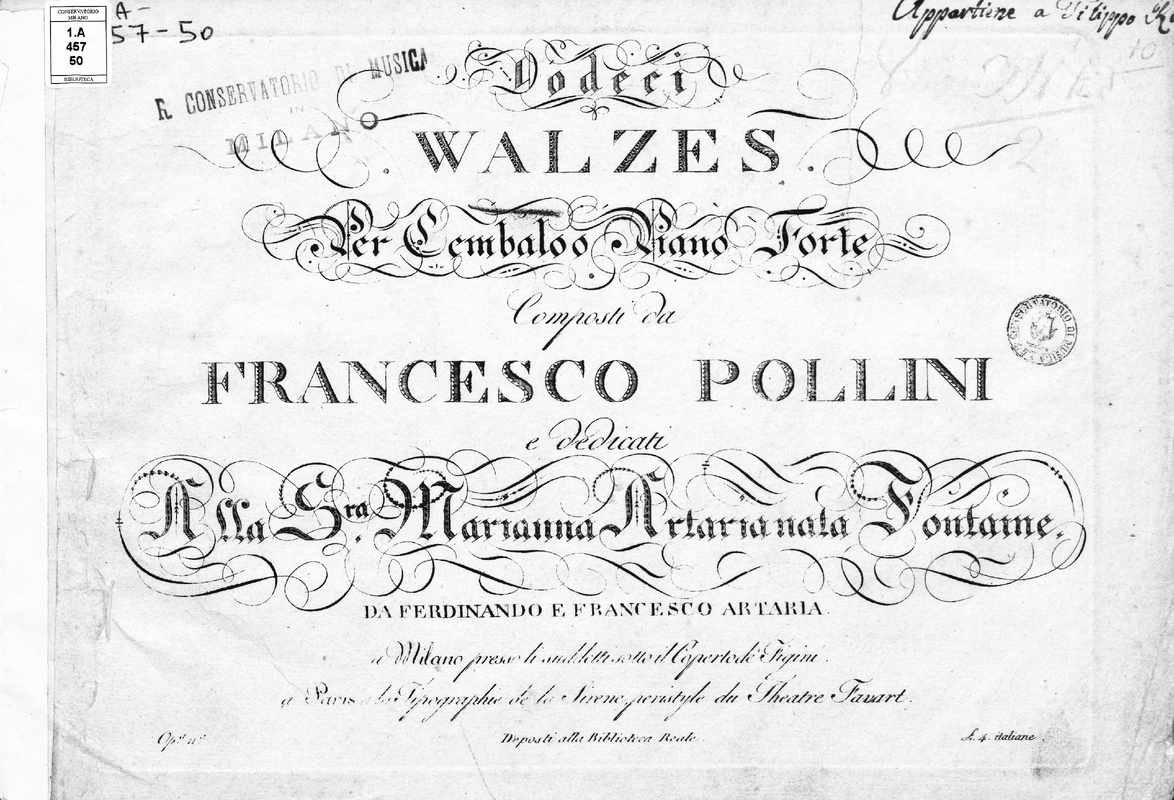 CONSERVATORIO
MILANO
1.A
457
50
BIBLIOTECA
A-
57-50
R. CONSERVATORIO DI MUSICA
IN
MILANO
Appartiene a Filippo
10
2
Dodeci
WALZES.
Per Cembalo o Piano Forte
Composti da
FRANCESCO POLLINI
e dedicati
Alla Sra. Marianna Artaria nata Fontaine.
DA FERDINANDO E FRANCESCO ARTARIA.
a Milano presso li suddetti sotto il Coperto de' Figini.
a Paris a la Tipographie de la Sirene, peristyle du Theatre Favart.
Opa. no.
Deposti alla Biblioteca Reale.
L. 4. italiane.
CONSERVATORIO DI MUSICA